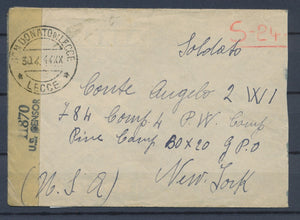 S-24
SAN DONATO DI LECCE
30.4.44.XX
* LECCE *
11870
U.S. CENSOR
Soldato
Conte Angelo 2 W/1
784 Comp 4 P.W. Camp
Pine Camp BOX 20 G.P.O
(U.S.A) New York